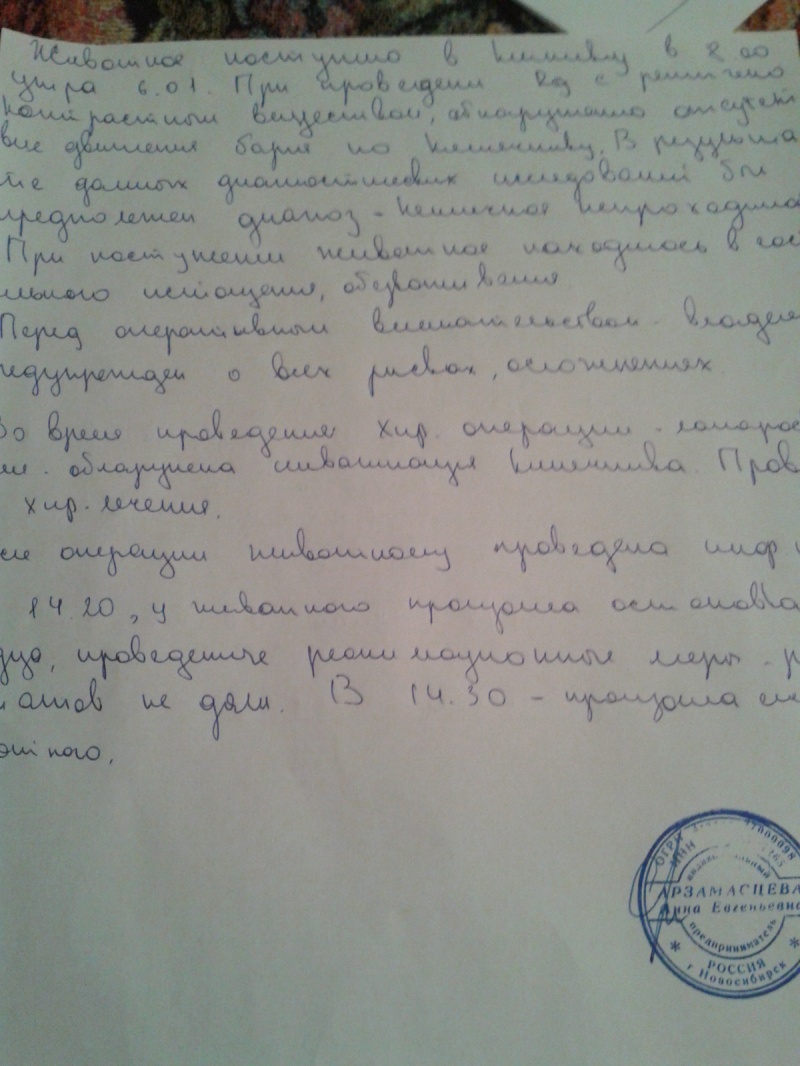 Животное поступило в клинику в 8.00
утра 6.01. При проведении Rg с рентгено
контрастным веществом, обнаружено отсутст
вие движения бария по кишечнику. В результа
те данных диагностических исследований был
предположен диагноз - кишечная непроходимо
При поступлении животное находилось в сос
льного истощения, обезвоживания.
Перед оперативным вмешательством - владеле
редупрежден о всех рисках, осложнениях.
Во время проведения хир. операции - лапарос
обнаружена инвагинация кишечника. Пров
хир. лечение.
сле операции животному проведена инф.
14.20, у животного произошла остановка
рдца, проведенные реанимационные меры - р
татов не дали. В 14.30 - произошла см
отного.
ОГРН 47000098
ИНН 265
индивидуальный
АРЗАМАСЦЕВА
Анна Евгеньевна
предприниматель
* РОССИЯ *
г Новосибирск